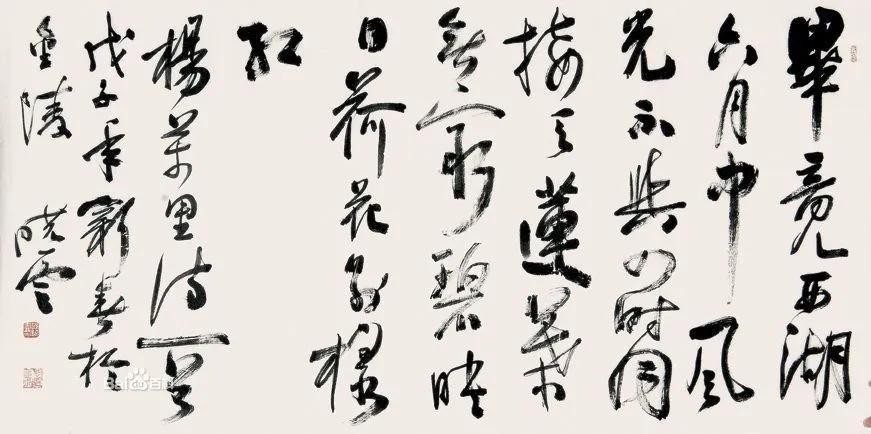 畢竟西湖
六月中風
光不與四時同
接天蓮葉
無窮碧映
日荷花別樣
紅
楊萬里詩一首
戊子年新春於
金陵 曉雲
Bai百科